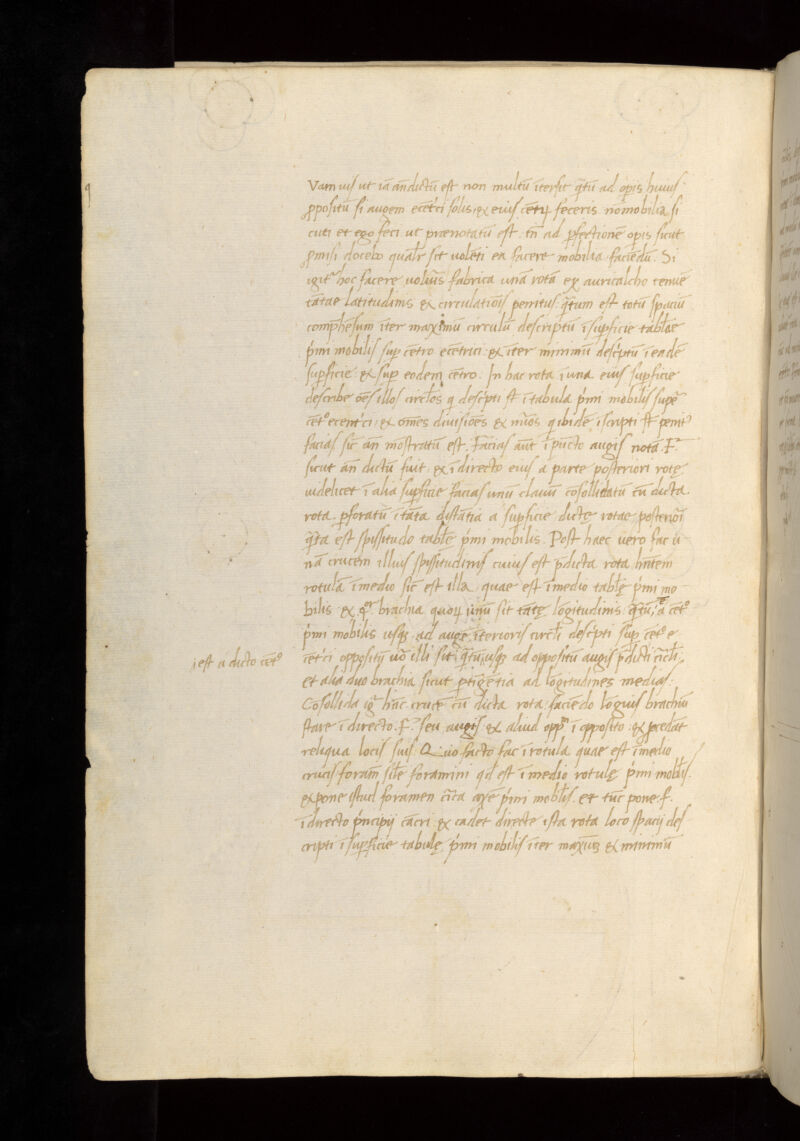 Vam uis ut iā an̄dictū est non multū īersit q̄tū ad opis huius
ꝓpositū si augem ecēt'ci solis, & eius cētꝝ feceris nō mobilia si
cuti et ego feci ut prænotatū est. tn̄ ad ꝑfectionē opis sicut
ꝓmisi docebo qualr̄ sit uolēti ea facere mobilia faciēdū. Si
igit' hoc facere uolūis fabrica unā rotā ex auricalcho tenuē
tātae latitudinis & circulatiōis penitus q̄tum est totū spaciū
comp̄hēsum īter maximū circulū descriptū ī supficie tablæ
p'mi mobilis sup cētro ecētrici: & īter minimū desc'ptū ī eadē
supficie & sup eodem cētro. In hac rota ī una eius supficie
describe oēs illos circlos q descipti st̄ ī tabula p'mi mobilis supe
cēt° ecent'ci: & omēs diuisiōes & nūos q ibidē īscripti st̄ penit'
facias sic an̄ mōstratū est. Facias aūt ī pūcto augis notā .F.
sicut an̄ dictū fuit & ī directo eius a parte posteriori rotę
uidelicet ī alia supficie facias unū clauū cōsollidatū cū dicta
rota ꝑforatū ī tāta distātia a supficie dictę rotae posteriōi
q̄ta est spissitudo tablę p'mi mobilis. Post haec uero fac u
nā crucem illius spissitudinis cuius est p̄dicta rota hn̄tem
rotulā ī medio sic est illa quae est ī medio tablę p'mi mo
bilis & q° brachia quoꝝ unū sit tātę lōgitudinis q̄tū a cēt°
p'mi mobilis usq; ad augē īterioris circli desc'pti sup cēt° e
i est a dicto cēt°
cēt'ci oppositū uō illi sit q̄tū usq; ad oppositū augis p̄dicti circli,
et alia duo brachia sicut ptīgētia ad lōgitudines medias.
Cōsollida ig' hāc crucē cū dicta rota faciēdo lōguis brachiū
stare ī directo .F. seu augis & aliud opp̄° ī opposito & p̄cedāt
reliqua locis suis. Quo facto fac ī rotula quae est ī medio
crucis foramē sile foramini qd est ī medio rotulę p'mi mobilis.
& pone istud foramen circa axē p'mi mobilis. et tūc pone .f.
ī directo p'ncipij cācri & cadet directe ista rota loco spacij des
cripti ī supficie tabulę p'mi mobilis īter maxiuꝫ & minimū